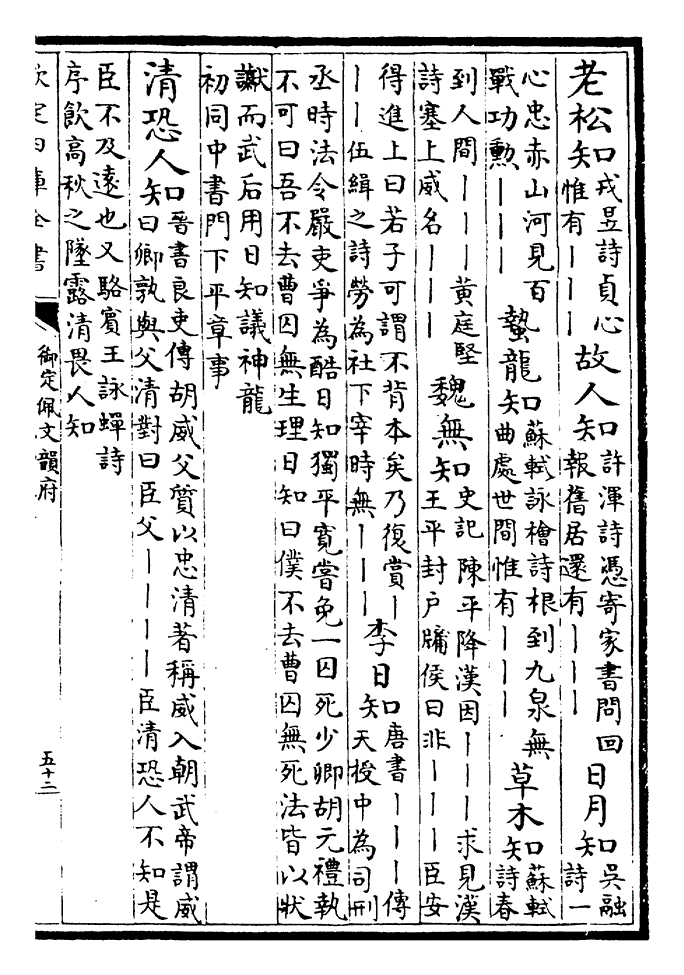 老松知戎昱詩貞心惟有｜｜｜故人知許渾詩憑寄家書問回報舊居還有｜｜｜日月知吳融詩一
心忠赤山河見百戰功勲｜｜｜蟄龍知蘇軾詠檜詩根到九泉無曲處世間惟有｜｜｜草木知蘇軾詩春
到人間｜｜｜黄庭堅詩塞上威名｜｜｜魏無知史記陳平降漢因｜｜｜求見漢王平封戶牖侯曰非｜｜｜臣安
得進上曰若子可謂不背本矣乃復賞｜｜｜伍緝之詩勞為社下宰時無｜｜｜李日知唐書｜｜｜傳天授中為司刑
丞時法令嚴吏爭為酷日知獨平寛嘗免一囚死少卿胡元禮執不可曰吾不去曹囚無生理日知曰僕不去曹囚無死法皆以狀
讞而武后用日知議神龍初同中書門下平章事
清恐人知晉書良吏傳胡威父質以忠清著稱威入朝武帝謂威曰卿孰與父清對曰臣父｜｜｜｜臣清恐人不知是
臣不及遠也又駱賓王詠蟬詩序飲高秋之墜露清畏人知
欽定四庫全書
御定佩文韻府
五十二